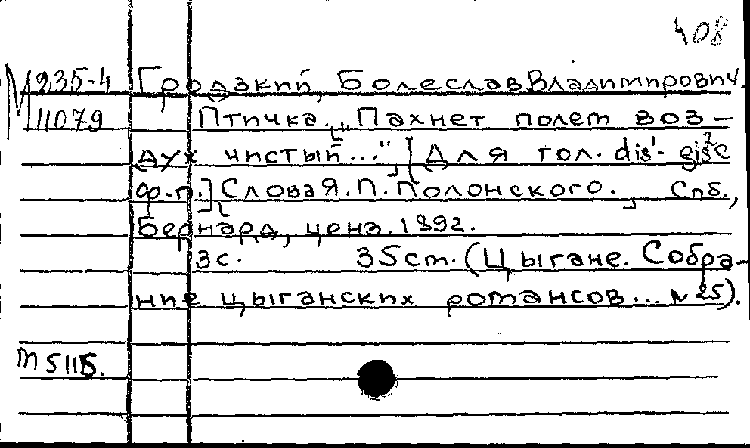 408
М 235-4 Гродзкий, Болеслав Владимирович.
11079 Птичка. „Пахнет полем воз-
дух чистый..." [Для гол. dis¹- gis² с
ф-п.] [Слова Я. П. Полонского.] Спб.,
Бернард, ценз. 1892.
3с. 35см. (Цыгане. Собра-
ние цыганских романсов... № 25).
М 5115.